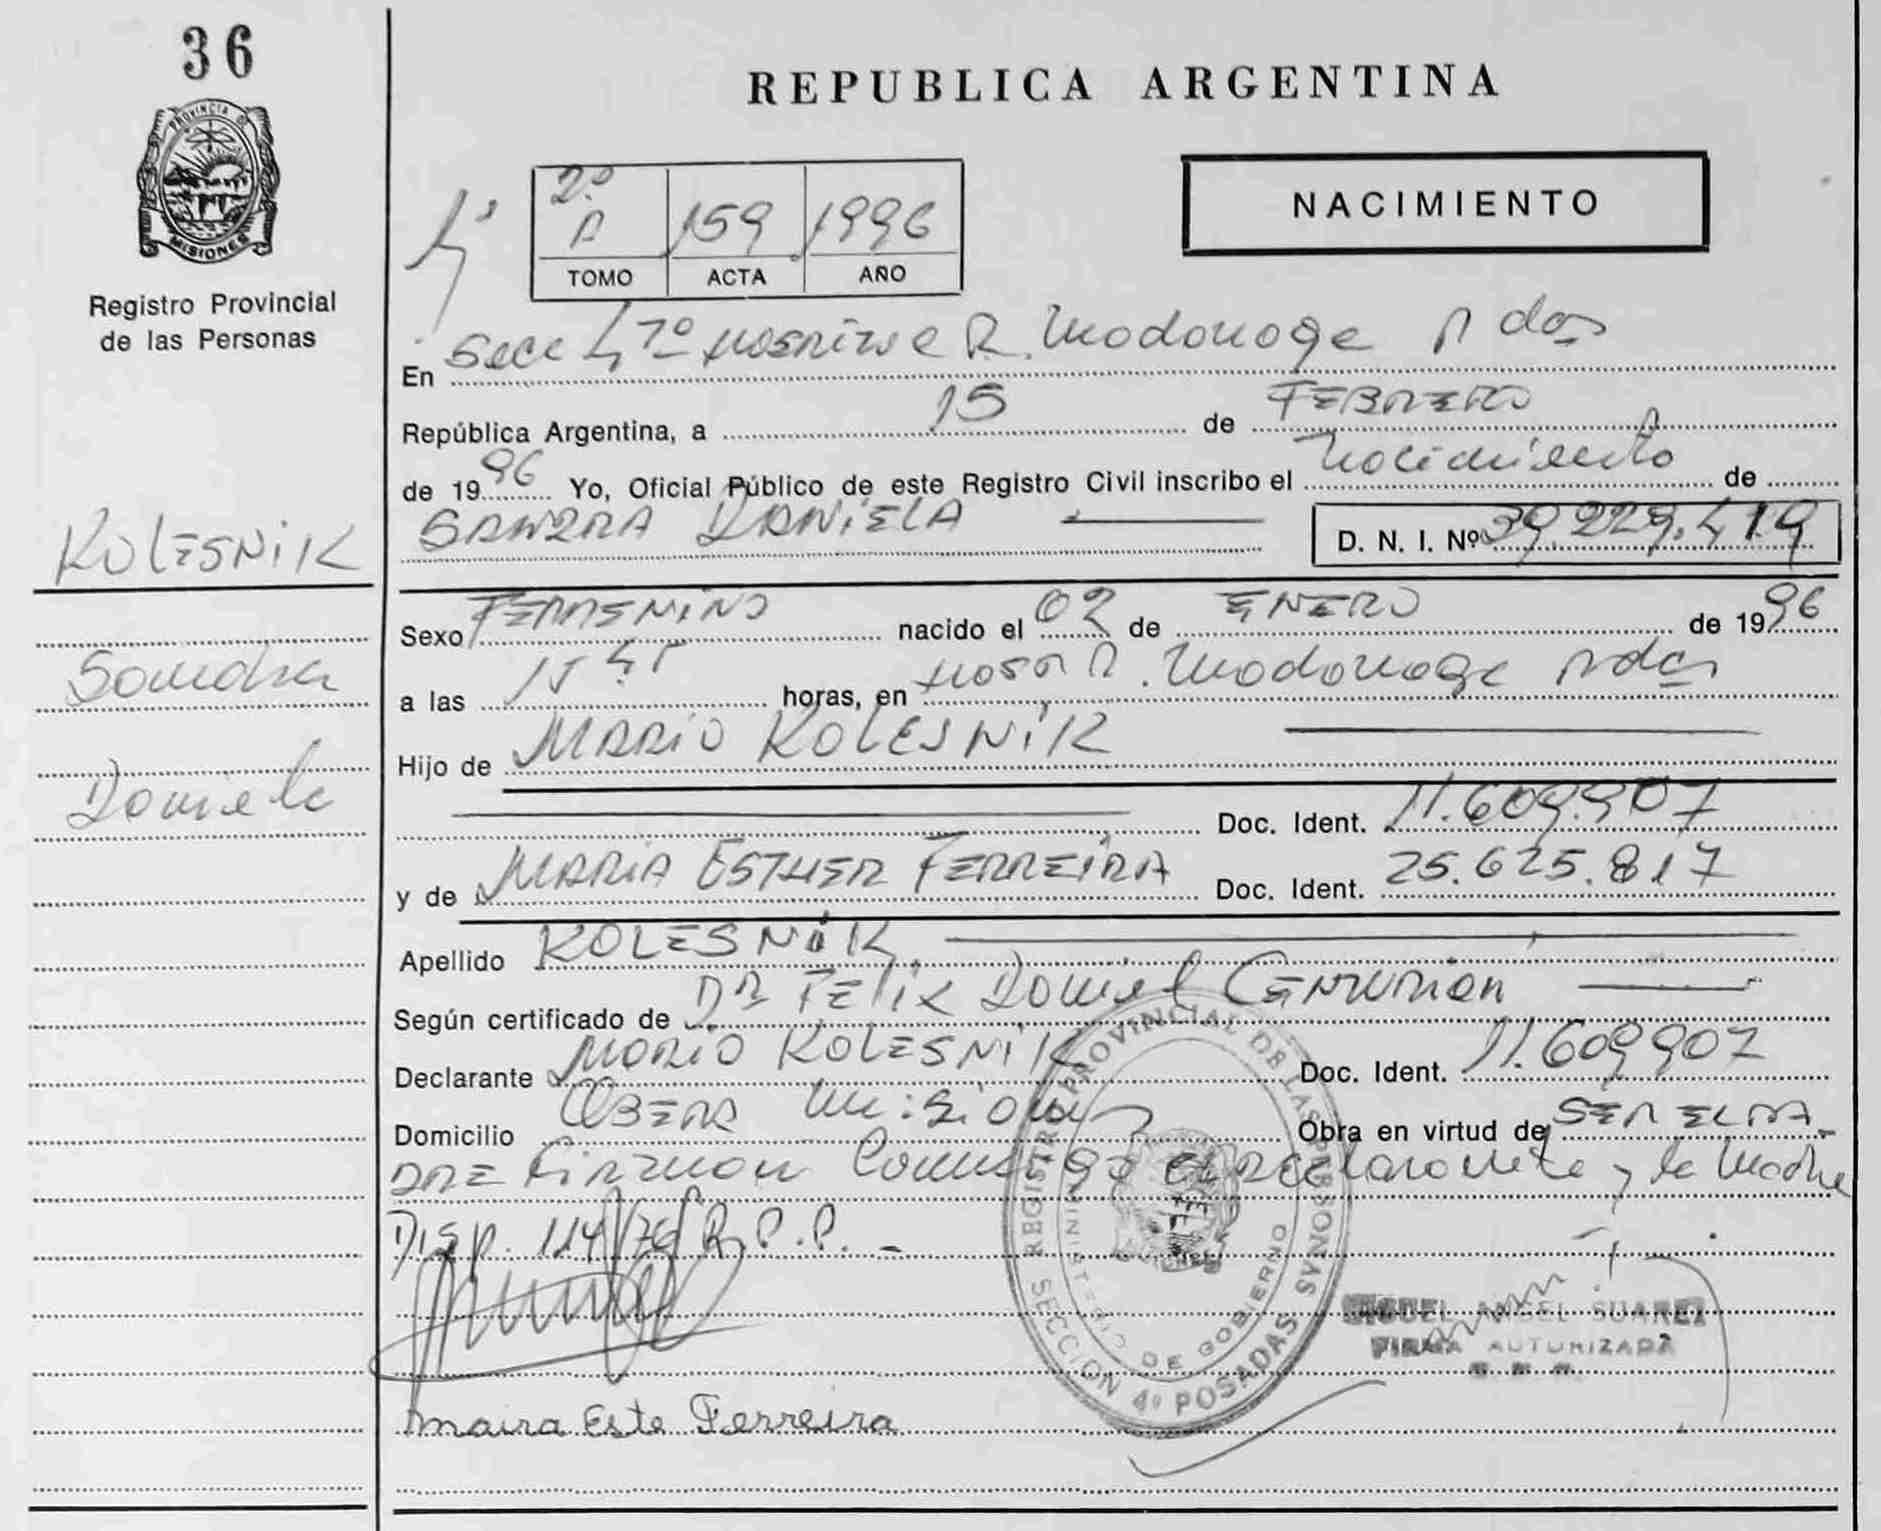 36
PROVINCIA DE
MISIONES
Registro Provincial
de las Personas
KOLESNIK
Sandra
Daniela
REPUBLICA ARGENTINA
NACIMIENTO
4º
2º A 159 1996
TOMO ACTA AÑO
En Secc 4ta R. Madariaga Pdas
República Argentina, a 15 de FEBRERO
de 1996 Yo, Oficial Público de este Registro Civil inscribo el Nacimiento de
SANDRA DANIELA D. N. I. Nº 39.229.419
Sexo FEMENINO nacido el 02 de ENERO de 1996
a las horas, en Hosp R. Madariaga Pdas
Hijo de MARIO KOLESNIK
Doc. Ident. 11.609.907
y de MARIA ESTHER FERREIRA Doc. Ident. 25.625.817
Apellido KOLESNIK
Según certificado de DR FELIX Daniel CENTURION
Declarante MARIO KOLESNIK Doc. Ident. 11.609907
Domicilio OBERA Misiones Obra en virtud de SER EL PA-
DRE Firman Conmigo el Declarante y la Madre
Disp. 114/76 R.P.P. -
REGISTRO PROVINCIAL DE LAS PERSONAS
MINISTERIO DE GOBIERNO
SECCION 4º POSADAS
MIGUEL ANGEL SUAREZ
FIRMA AUTORIZADA
maira Este Ferreira